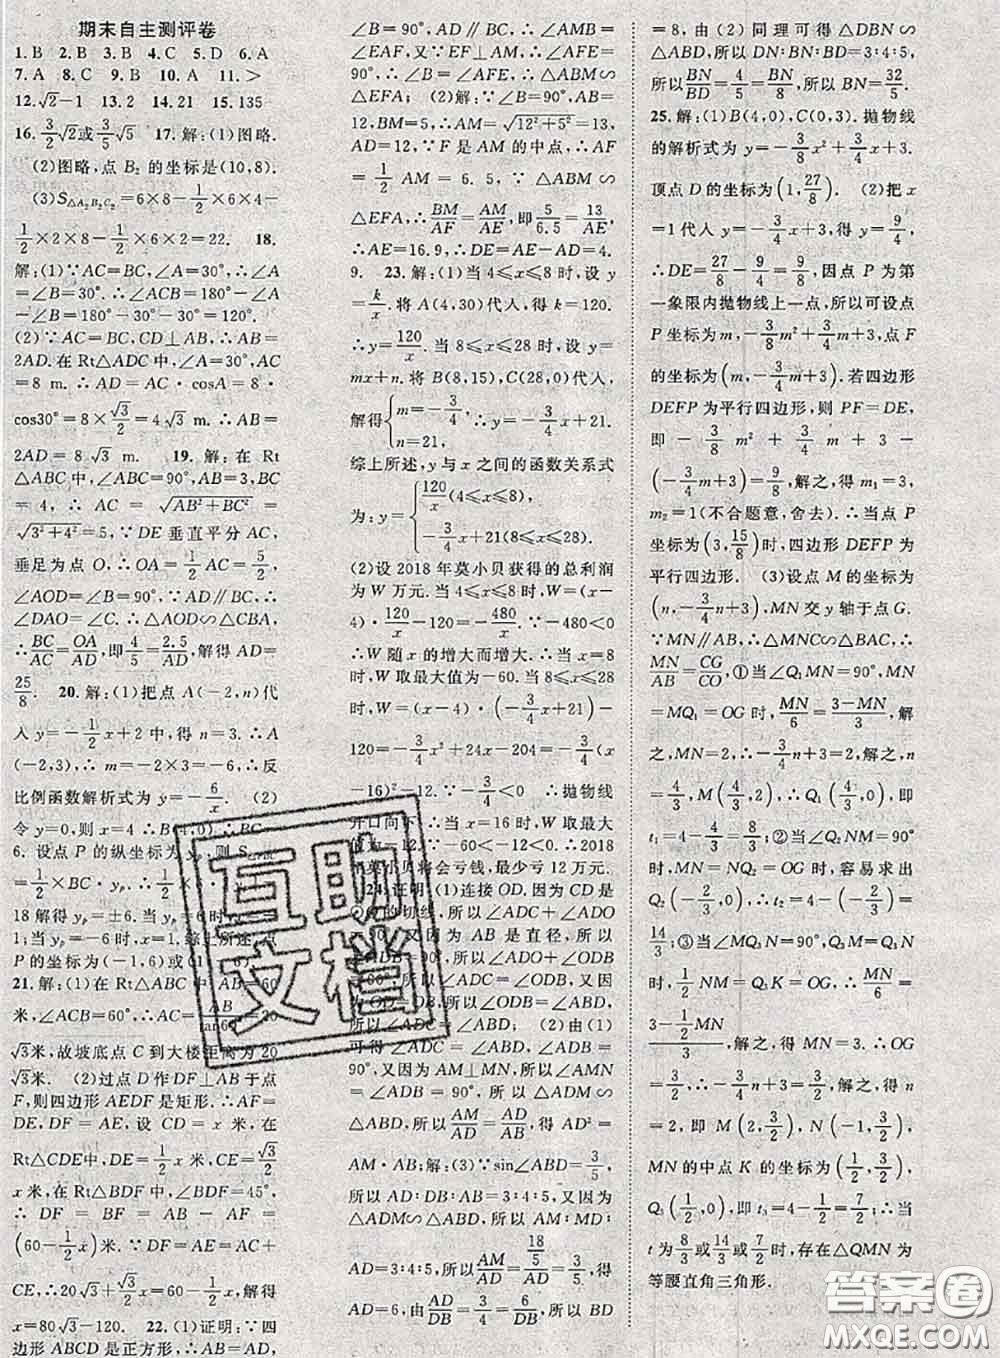 期末自主测评卷
1. B 2. B 3. B 4. C 5. D 6. A
7. A 8. C 9. B 10. A 11. >
12. √2-1 13. 2 14. 21 15. 135
16. 3/2√2或3/5√5 17. 解:(1)图略.
(2)图略,点 B₂ 的坐标是(10,8).
(3)S△A₂B₂C₂=6×8-1/2×6×4-
1/2×2×8-1/2×6×2=22. 18.
解:(1)∵AC=BC,∠A=30°,∴∠A
=∠B=30°.∴∠ACB=180°-∠A
-∠B=180°-30°-30°=120°.
(2)∵AC=BC,CD⊥AB,∴AB=
2AD.在 Rt△ADC 中,∠A=30°,AC
=8 m.∴AD=AC·cosA=8·
cos30°=8×√3/2=4√3.∴AB=
2AD=8√3 m. 19. 解:在 Rt
△ABC 中,∠ABC=90°,AB=3,BC
=4,∴AC=√(AB²+BC²)=
√(3²+4²)=5,∵DE 垂直平分 AC,
垂足为点 O,∴OA=1/2AC=5/2,
∠AOD=∠B=90°,∵AD∥BC,∴
∠DAO=∠C.∴△AOD∽△CBA,
∴BC/AC=OA/AD,即4/5=2.5/AD,解得 AD=
25/8. 20. 解:(1)把点 A(-2,n)代
入 y=-1/2x+2中,得 n=3.∴A
(-2,3),∴m=-2×3=-6,∴反
比例函数解析式为 y=-6/x. (2)
令 y=0,则 x=4.
6. 设点 P 的纵坐标为
=1/2×BC·yₚ
18 解得 yₚ=±6.当 yₚ=6
1;当 yₚ=-6 时,x=1,综上所述,点
P 的坐标为(-1,6)或(1,
21. 解:(1)在 Rt△ABC 中,AB=60
米,∠ACB=60°,∴AC=
√3米,故坡底点 C 到大楼距离为 20
√3米. (2)过点 D 作 DF⊥AB 于点
F,则四边形 AEDF 是矩形.∴AF=
DE,DF=AE,设 CD=x 米,在
Rt△CDE中,DE=1/2x 米,CE=√3/2
x 米,在 Rt△BDF 中,∠BDF=45°,
∴DF=BF=AB-AF=
(60-1/2x)米.∵DF=AE=AC+
CE,∴20√3+√3/2x=60-1/2x,解得
x=80√3-120. 22. (1)证明:∵四
边形 ABCD 是正方形,∴AB=AD,
∠B=90°,AD∥BC.∴∠AMB=
∠EAF,又∵EF⊥AM,∴∠AFE=
90°,∴∠B=∠AFE,∴△ABM∽
△EFA; (2)解:∵∠B=90°,AB=
12,BM=5,∴AM=√(12²+5²)=13,
AD=12,∵F 是 AM 的中点,∴AF
=1/2AM=6.5,∵△ABM∽
△EFA,∴BM/AF=AM/AE,即5/6.5=13/AE,
∴AE=16.9,∴DE=AE-AD=4.
9. 23. 解:(1)当 4≤x≤8 时,设 y=
k/x.将 A(4,30)代人,得 k=120.
∴y=120/x.当 8≤x≤28 时,设 y=
mx+n.将 B(8,15),C(28,0)代人,
解得{m=-3/4, n=21, ∴y=-3/4x+21.
综上所述,y 与 x 之间的函数关系式
为:y={120/x(4≤x≤8), -3/4x+21(8≤x≤28).
(2)设 2018 年莫小贝获得的总利润
为 W 万元.当 4≤x≤8 时,W=(x-
4)·120/x-120=-480/x.∵-480<0
∴W 随 x 的增大而增大.∴当 x=8
时,W 取最大值为-60.当 8≤x≤28
时,W=(x-4)·(-3/4x+21)-
120=-3/4x²+24x-204=-3/4(x
-16)²-12.∵-3/4<0.∴抛物线
开口向下.∴当 x=16 时,W 取最大
-12.∵-60<-12<0.∴2018
莫小贝将会亏钱,最少亏 12 万元.
24. 证明:(1)连接 OD.因为 CD 是
的切线,所以∠ADC+∠ADO
因为 AB 是直径,所以
所以∠ADO+
所以∠ADC=∠ODB.因为
所以∠ODB=∠OBD,所以
(2)由(1)
可得∠ADC=∠ABD,所以∠AMN
=∠ADB=90°,又因为
所以△ADM∽
△ABD,所以AM/AD=AD/AB,所以 AD²=
AM·AB;解:(3)∵sin∠ABD=3/5,
所以 AD:DB:AB=3:4:5,又因为
△ADM∽△ABD,所以 AM:DM:
AD=3:4:5,所以AM/AD=(18/5)/AD=3/5,得
AD=6,由AD/DB=6/DB=3/4,所以 BD
=8,由(2)同理可得△DBN∽
△ABD,所以 DN:BN:BD=3:4:5,
所以BN/BD=4/5=BN/8,所以 BN=32/5.
25. 解:(1)B(4,0),C(0,3).抛物线
的解析式为 y=-3/8x²+3/4x+3.
顶点 D 的坐标为(1,27/8). (2)把 x
=1代人 y=-3/4x+3,得 y=9/4,
∴DE=27/8-9/4=9/8,因点 P 为第
一象限内抛物线上一点,所以可设点
P 坐标为(m,-3/8m²+3/4m+3),点 F
的坐标为(m,-3/4m+3).若四边形
DEFP 为平行四边形,则 PF=DE,
即-3/8m²+3/4m+3-
(-3/4m+3)=9/8,解之,得 m₁=3,
m₂=1(不合题意,舍去).∴当点 P
坐标为(3,15/8)时,四边形 DEFP 为
平行四边形. (3)设点 M 的坐标为
(n,-3/4n+3),MN 交 y 轴于点 G.
∵MN∥AB,∴△MNC∽△BAC,∴
MN/AB=CG/CO,①当∠Q₁MN=90°,MN
=MQ₁=OG 时,MN/6=(3-MN)/3,解
之,MN=2,∴-3/4n+3=2,解之,n
=4/3,M(4/3,2),∴Q₁(4/3,0),即
t₁=4-4/3=8/3;②当∠Q₂NM=90°
时,MN=NQ₂=OG,容易求出
Q₂(-2/3,0),∴t₂=4-(-2/3)=
14/3;③当∠MQ₃N=90°,MQ₃=NQ₃
时,1/2MN=Q₃K=OG,∴MN/6=
(3-1/2MN)/3,解之,得 MN=3.∴OG
=3/2,∴-3/4n+3=3/2,解之,得 n
=2,即 M(2,3/2),N(-1,3/2),
MN 的中点 K 的坐标为(1/2,3/2),
Q₃(1/2,0),即 t₃=4-1/2=7/2.∴当
t为8/3或14/3或7/2时,存在△QMN 为
等腰直角三角形.
互助文档
答案圈
MXQE.COM